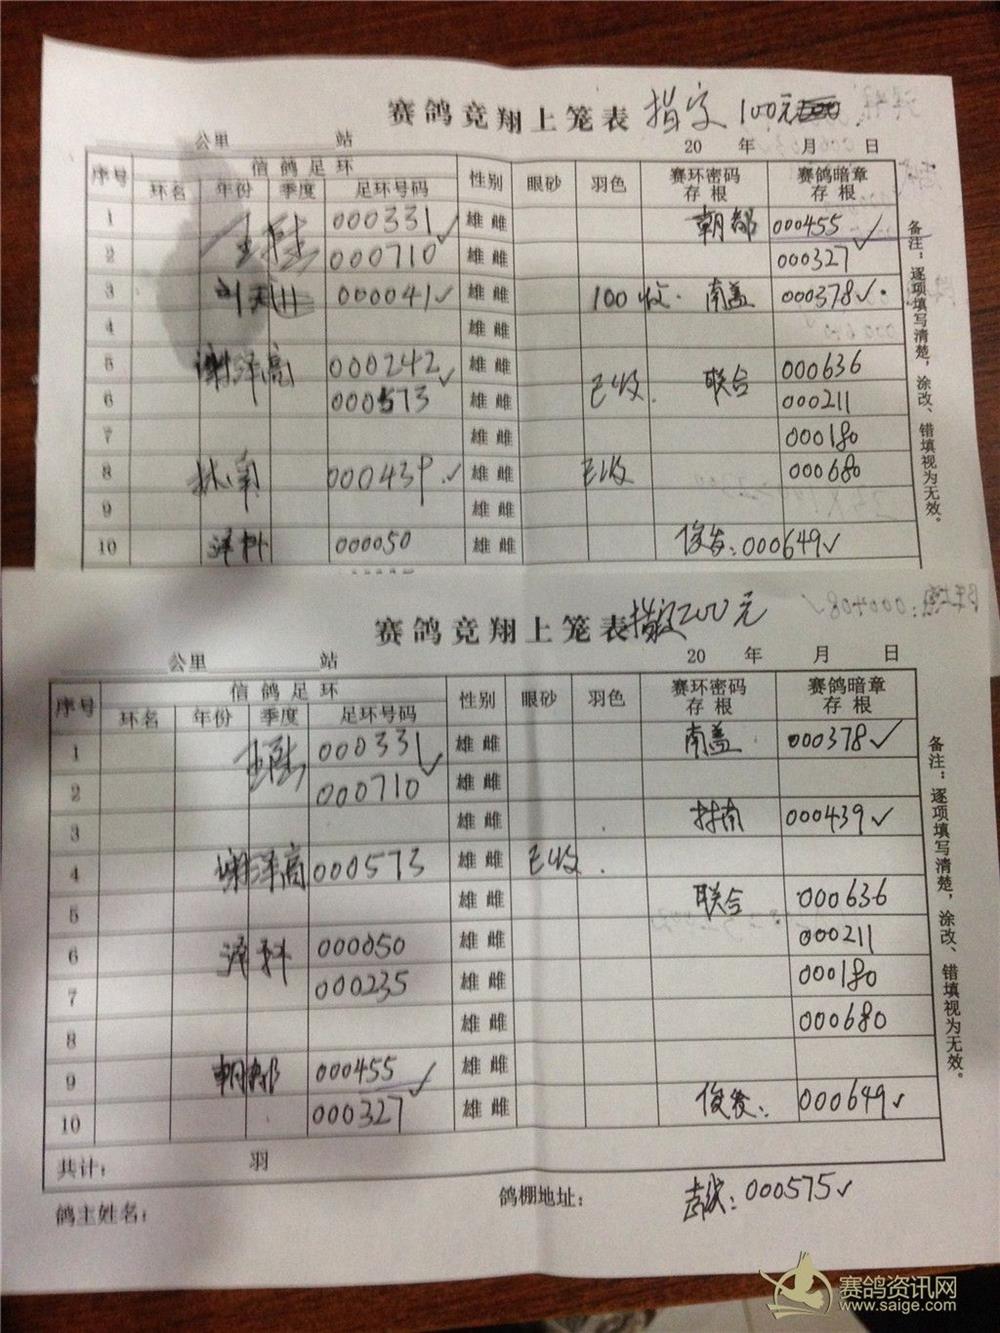 赛鸽竞翔上笼表 指定 100元
公里 站 20 年 月 日
序号 信鸽足环 性别 眼砂 羽色 赛环密码存根 赛鸽暗章存根
环名 年份 季度 足环号码
1 000331 雄 雌 朝都 000455
2 000710 雄 雌 000327
3 000041 雄 雌 100收. 南盖 000378
4 雄 雌
5 谢泽高 000242 雄 雌 已收. 联合 000636
6 000573 雄 雌 000211
7 雄 雌 000180
8 林南 000439 雄 雌 已收 000680
9 雄 雌
10 泽科 000050 雄 雌 俊发: 000649
备注：逐项填写清楚，涂改、错填视为无效。
000408
赛鸽竞翔上笼表 指定200元
公里 站 20 年 月 日
序号 信鸽足环 性别 眼砂 羽色 赛环密码存根 赛鸽暗章存根
环名 年份 季度 足环号码
1 000331 雄 雌 南盖 000378
2 000710 雄 雌
3 雄 雌 林南 000439
4 谢泽高 000573 雄 雌 已收.
5 雄 雌 联合 000636
6 泽科 000050 雄 雌 000211
7 000235 雄 雌 000180
8 雄 雌 000680
9 朝都 000455 雄 雌
10 000327 雄 雌 俊发: 000649
备注：逐项填写清楚，涂改、错填视为无效。
共计： 羽
鸽主姓名： 鸽棚地址： 000575
赛鸽资讯网
www.saige.com